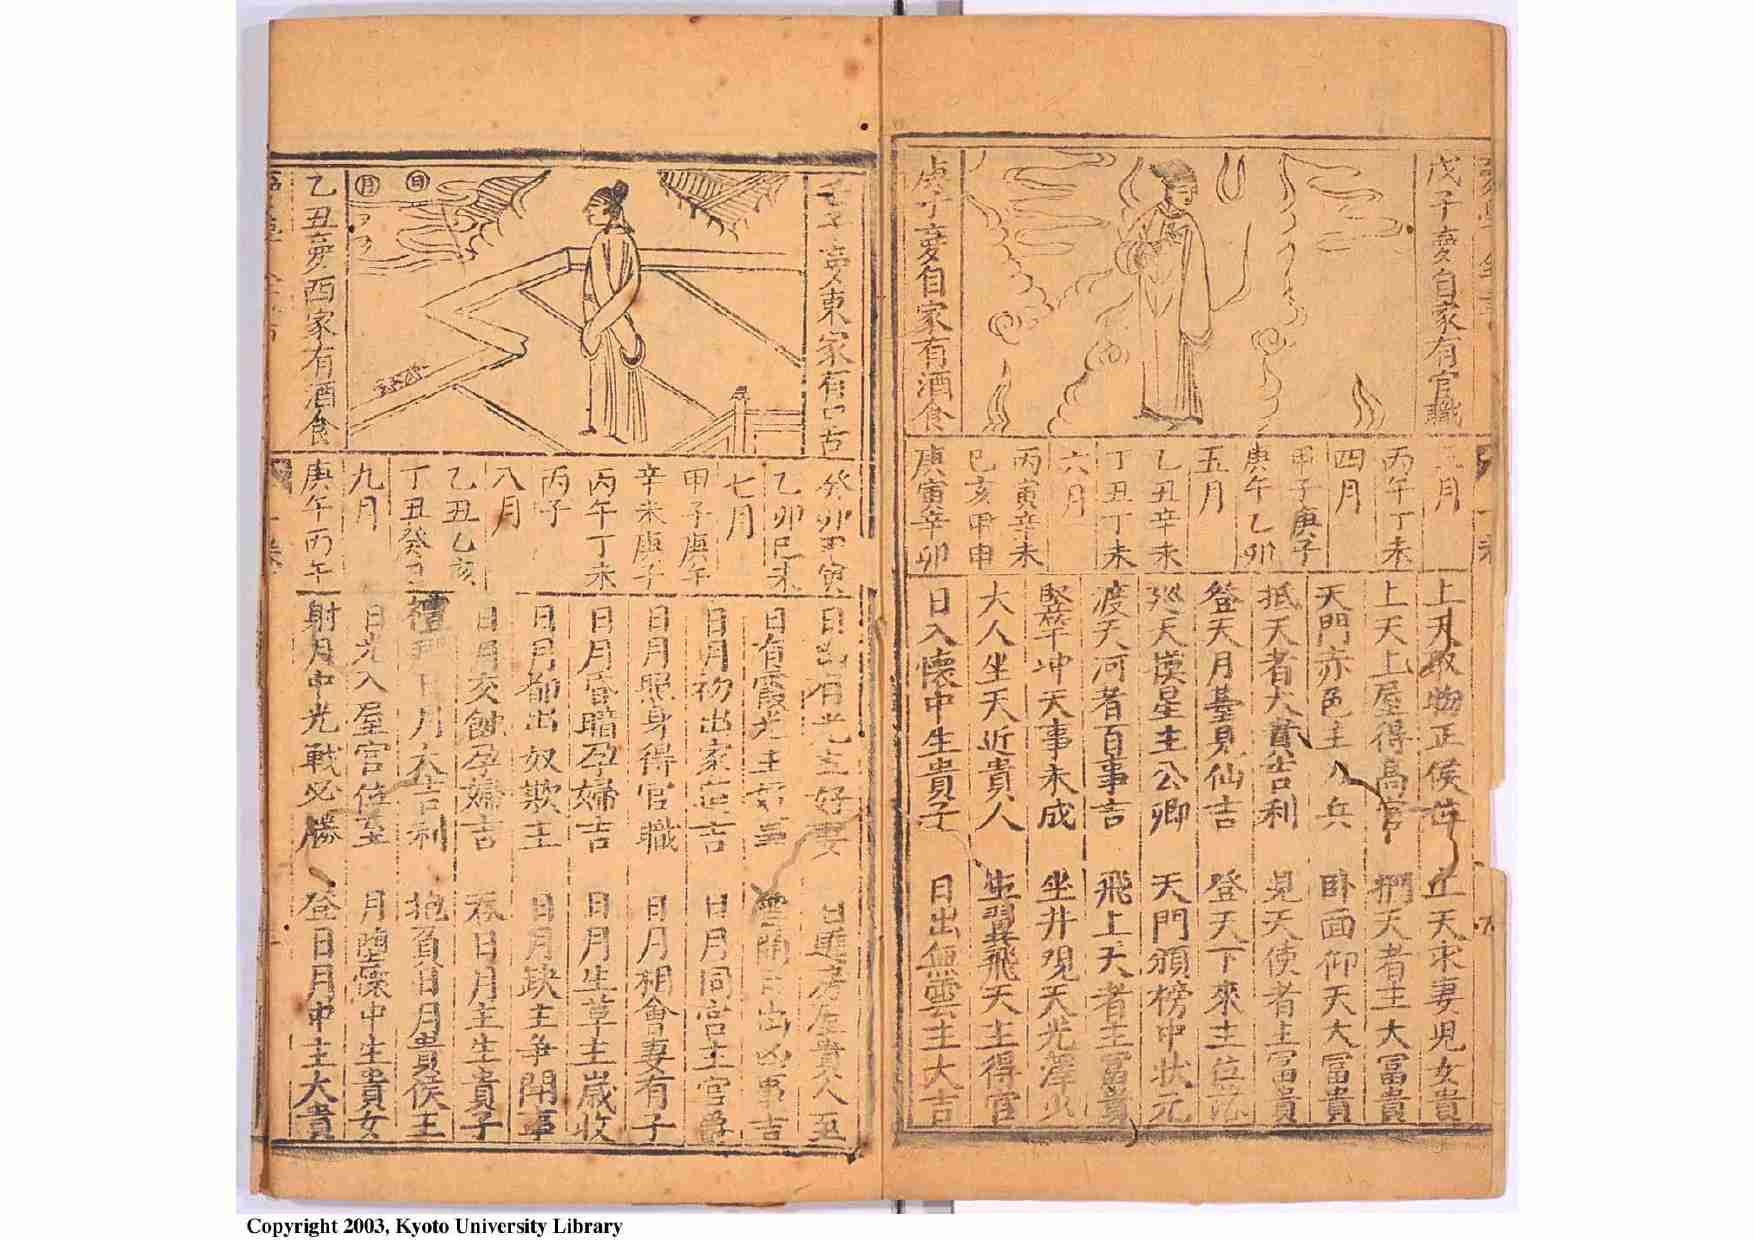 戊子夢自家有官職
庚子夢自家有酒食
月
丙午丁未
四月
甲子庚子
庚午乙卯
五月
乙丑辛未
丁丑丁未
六月
丙寅辛未
己亥甲申
庚寅辛卯
上天取物正侯 上天求妻兒女貴
上天上屋得高官 捫天者主大冨貴
天門赤色主 兵 卧面仰天大冨貴
抵天者大 吉利 見天使者主冨貴
登天月臺見仙吉 登天下來主位
巡天漢星主公卿 天門頒榜中状元
渡天河者百事吉 飛上天者主冨貴
坤天事未成 坐井观天光澤少
大人坐天近貴人 生翼飛天主得官
日入懷中生貴子 日出無雲主大吉
壬子夢東家有口舌
乙丑夢西家有酒食
月
日
癸卯甲寅
乙卯己未
七月
甲子庚午
辛未庚子
丙午丁未
丙子
八月
乙丑乙亥
丁丑癸
九月
庚午丙午
日出有光主好妻 日進房屋貴人至
日有霞光主 事 雲開日出凶事吉
日月初出家 吉 日月同 主官爵
日月照身得官職 日月相會妻有子
日月昏暗孕婦吉 日月生草主歲收
日月都出奴欺主 日月 主爭閗事
日月交蝕孕婦吉 吞日月主生貴子
禮拜日月大吉利 抱負日月貴侯王
日光入屋官位至 月墮懷中生貴女
射月中光戦必勝 登日月中主大貴
Copyright 2003, Kyoto University Library